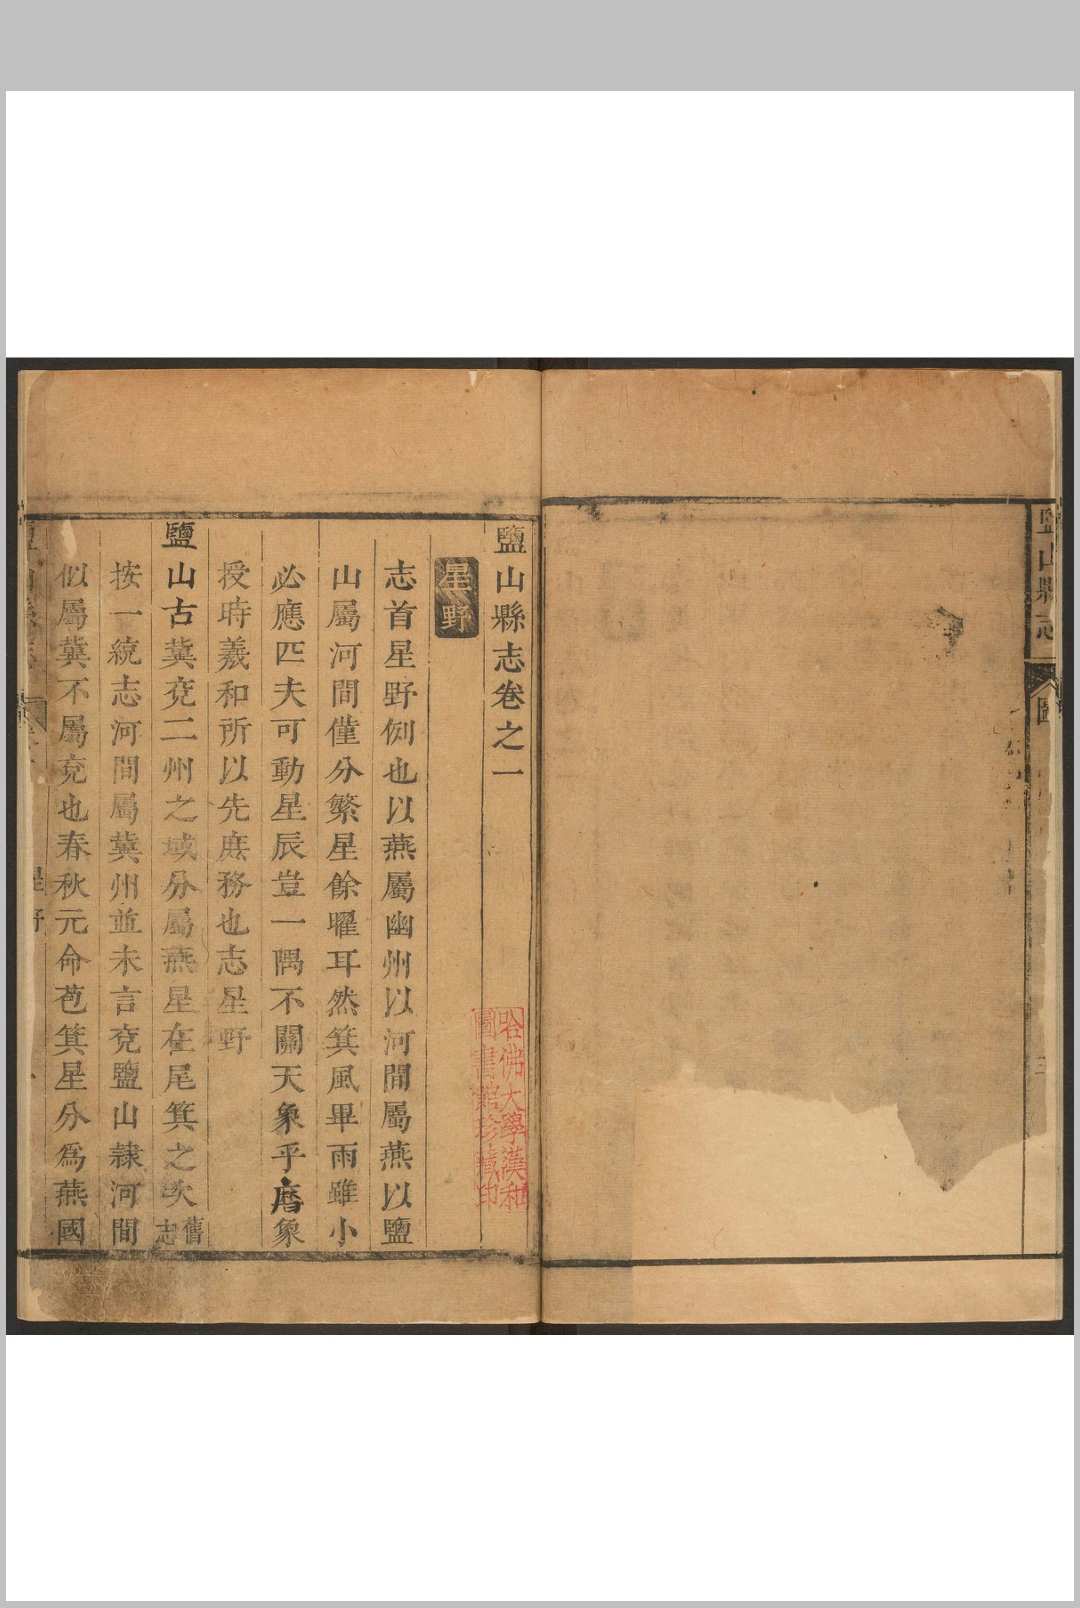 鹽山縣志
圖
三
鹽山縣志卷之一
星野
志首星野例也以燕屬幽州以河間屬燕以鹽
山屬河間僅分繁星餘曜耳然箕風畢雨雖小
必應匹夫可動星辰豈一隅不關天象乎曆象
授時羲和所以先庶務也志星野
鹽山古冀兗二州之域分屬燕星在尾箕之次舊志
按一統志河間屬冀州並未言兗鹽山隷河間
似屬冀不屬兗也春秋元命苞箕星分爲燕國
星野
哈佛大學漢和
圖書館珍藏印